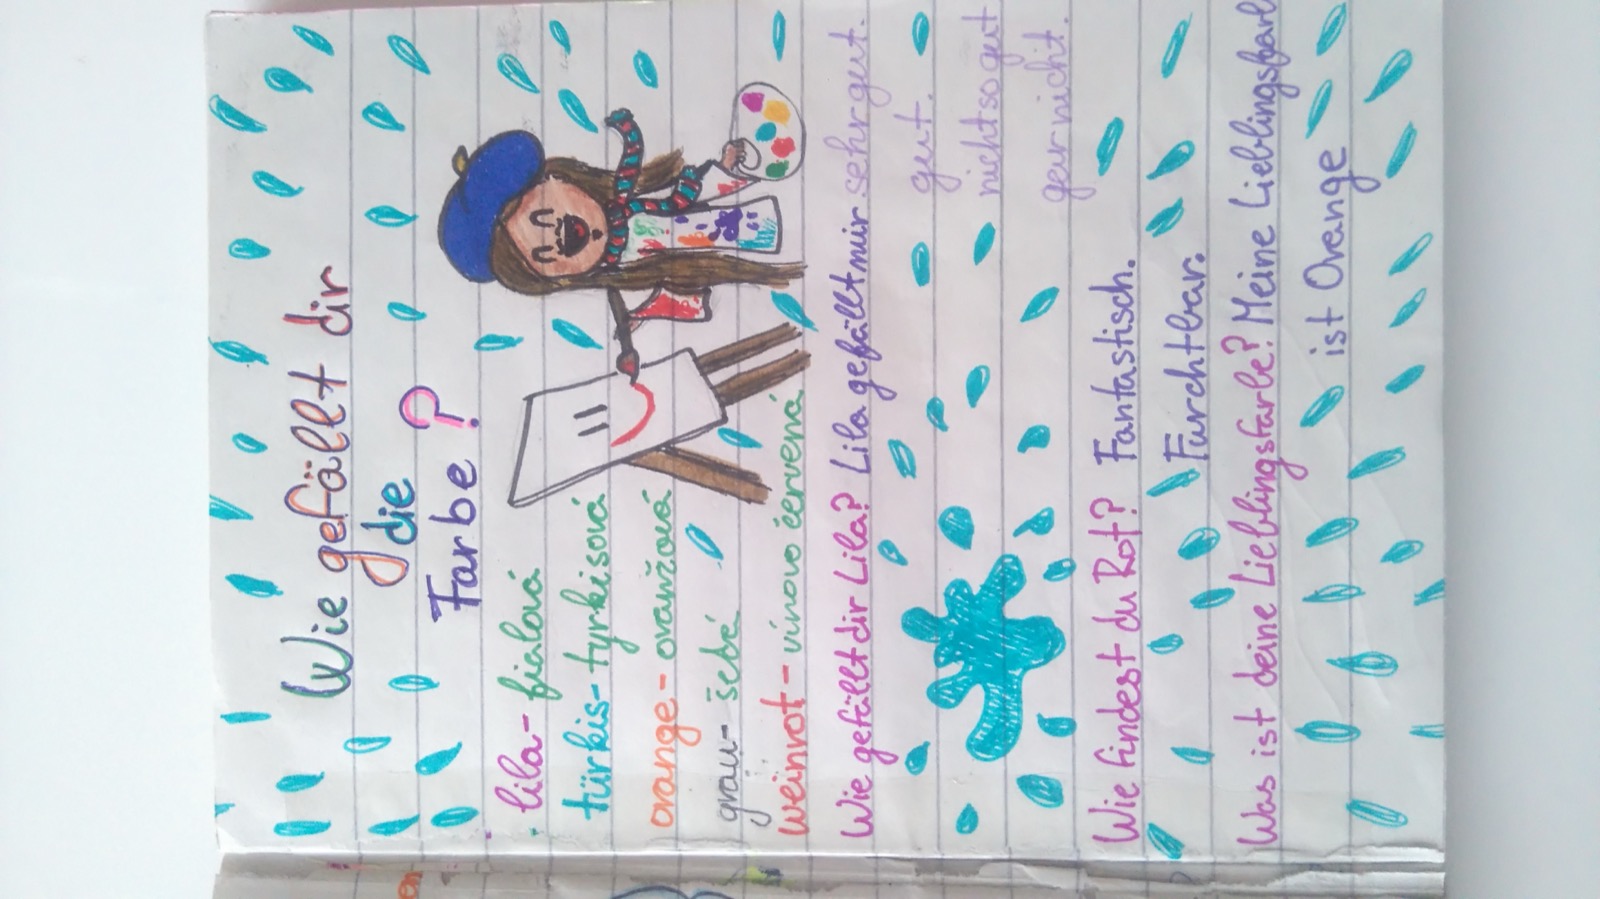 Wie gefällt dir
die
Farbe?
lila - fialová
türkis - tyrkisová
orange - oranžová
grau - šedá
weinrot - vínovo červená
Wie gefällt dir Lila? Lila gefällt mir sehr gut.
gut.
nicht so gut
gar nicht.
Wie findest du Rot? Fantastisch.
Furchtbar.
Was ist deine Lieblingsfarbe? Meine Lieblingsfarbe
ist Orange